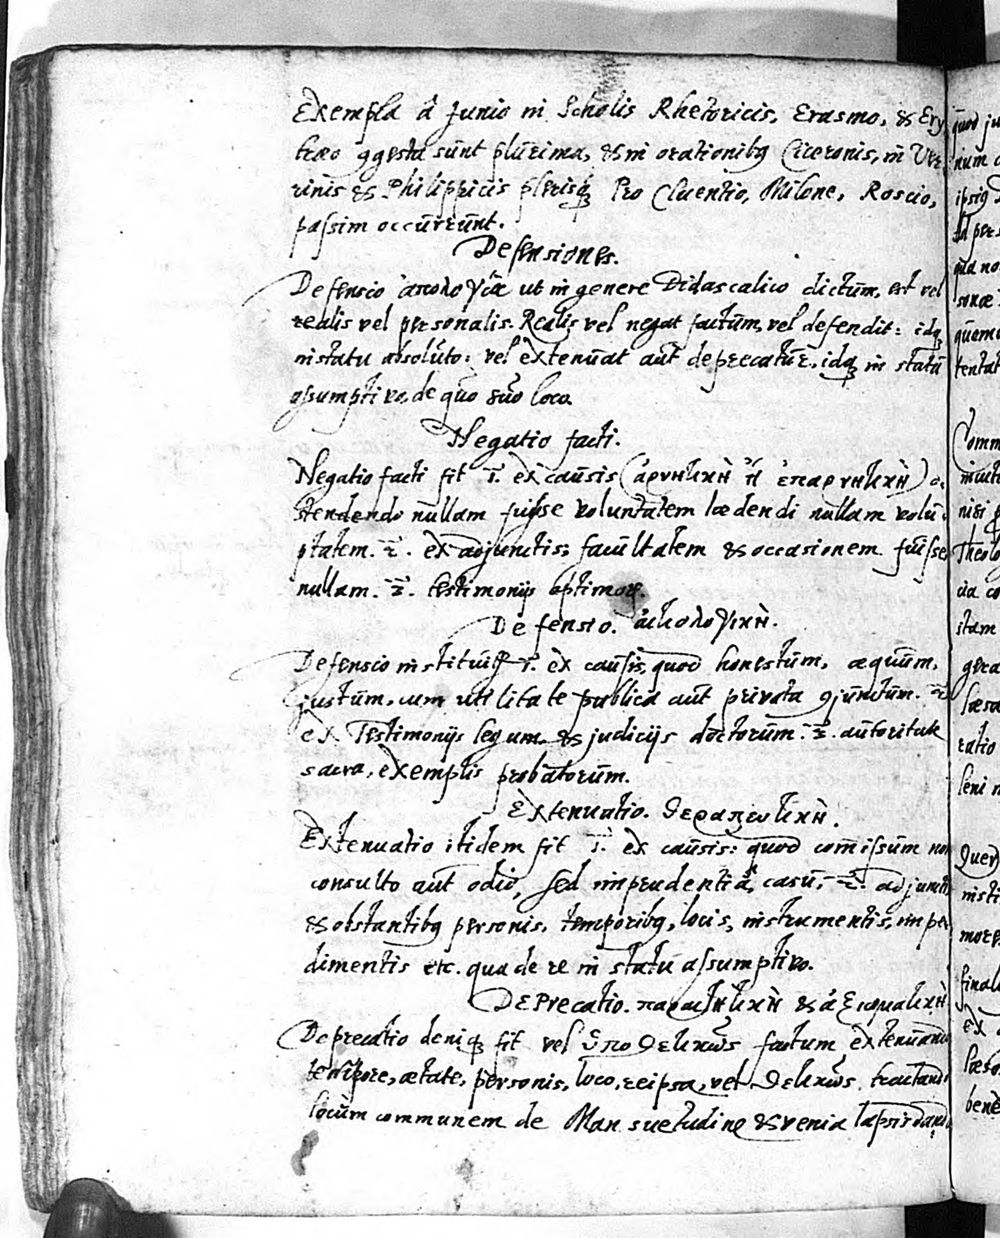 Exempla â Junio in Scholis Rhetoricis, Erasmo, & Ery
træo ꝯgesta sunt plurima, & in orationibꝰ Ciceronis, in Ver
rinis & Philippicis plerisqꝫ Pro Cluentio, Milone, Roscio,
passim occurrunt.
Defensiones.
Defensio ἀπολογία ut in genere Didascalico dictum, est vel
realis vel personalis. Realis vel negat factum, vel defendit: idqꝫ
in statu absoluto: vel extenuat aut deprecatur, idqꝫ in statu
assumptivo, de quo suo loco.
Negatio facti.
Negatio facti fit 1. ex causis (ἀρνητικὴ ἢ ἐπαρνητικὴ) o-
stendendo nullam fuisse voluntatem lædendi nullam volu
ptatem. 2. ex adjunctis; facultatem & occasionem fuisse
nullam. 3. testimonijs optimorꝫ.
Defensio. ἀπολογικὴ.
Defensio instituit 1. ex causis, quod honestum, æquum,
justum, cum utilitate publica aut privata ꝯjunctum. 2
ex Testimonijs legum & judicijs doctorum. 3. autoritate
sacra, exemplis probatorum.
Extenuatio. θεραπευτικὴ.
Extenuatio itidem fit 1. ex causis: quod comissum non
consulto aut odio, sed imprudentiâ, casu, 2. adjunctis
& obstantibꝰ personis, temporibꝰ, locis, instrumentis, impe
dimentis etc. qua de re in statu assumptivo.
Deprecatio. παραιτητικὴ & ἀξιωματικὴ
Deprecatio deniqꝫ fit vel ὑποθετικῶς factum extenuando
tempore, ætate, personis, loco, reipsa, vel θετικῶς tractando
locum communem de Mansuetudine & venia lapsis danda
quod
ipsiꝰ
sonæ
Comm
nisi
Theolo
stam
gera
læsa
ratio
leni
Quer
finali
ex
bene